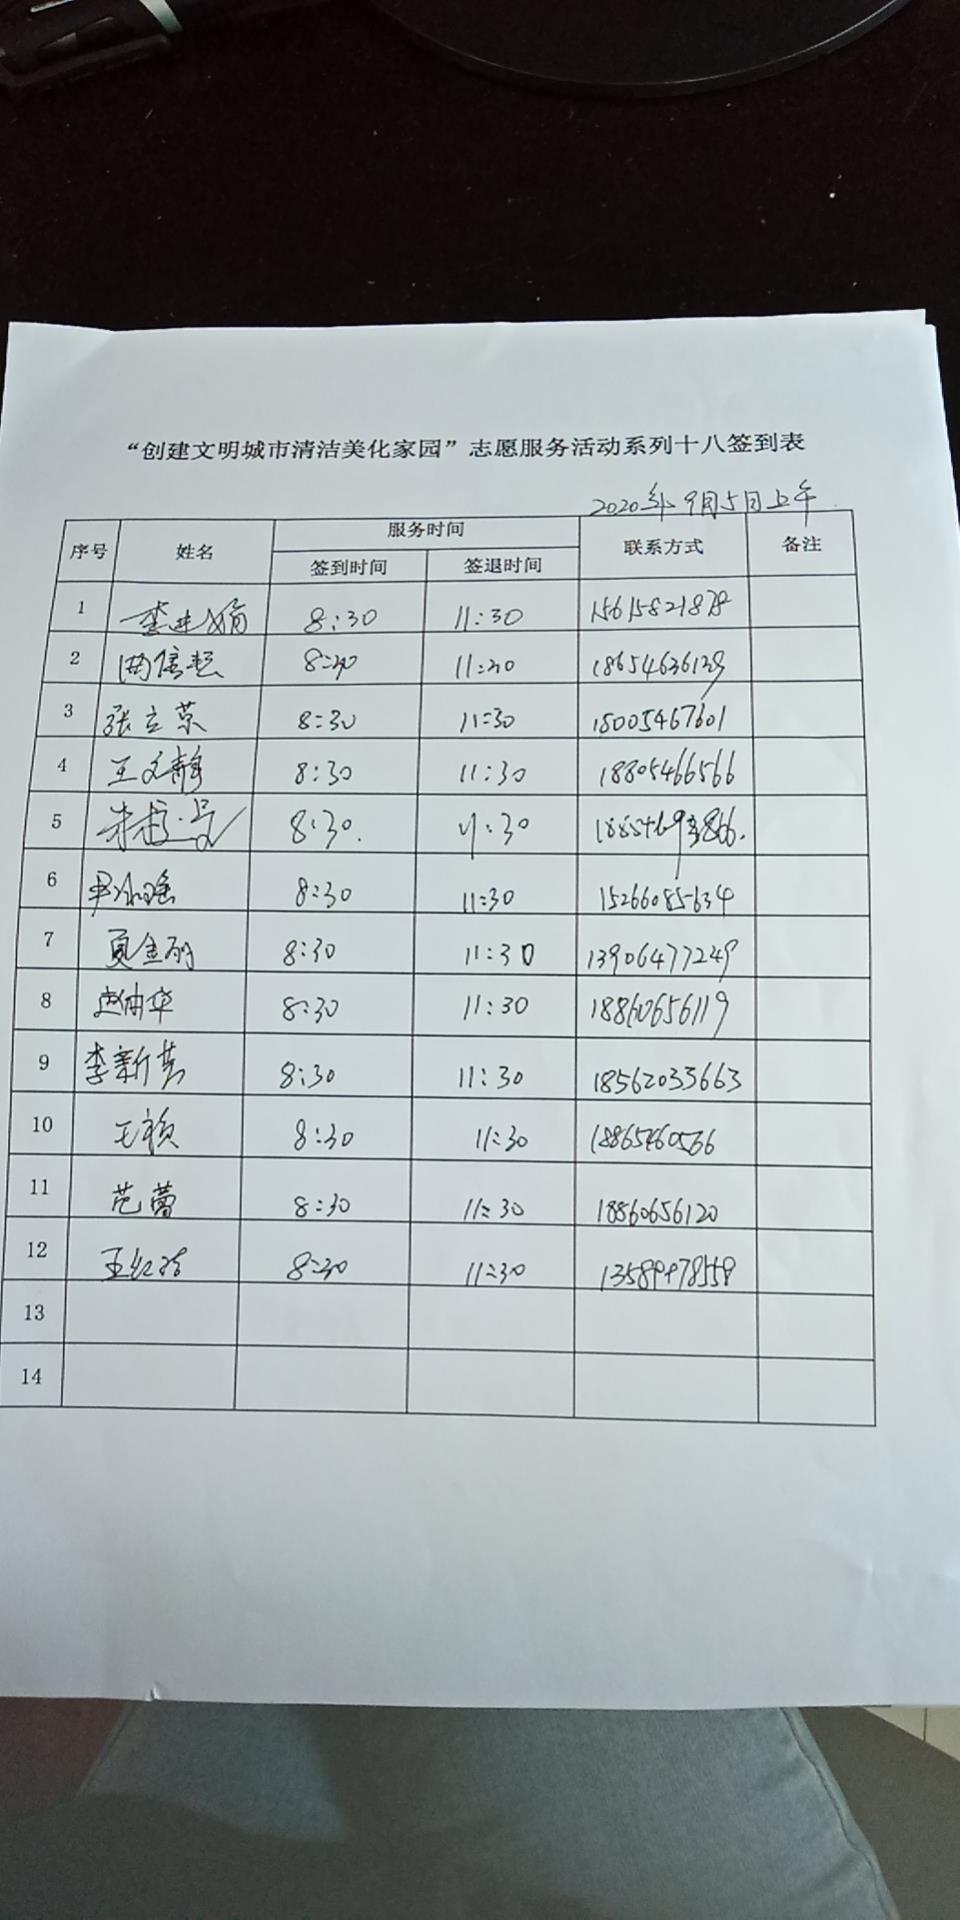 “创建文明城市清洁美化家园”志愿服务活动系列十八签到表
2020年9月5日上午
序号 姓名 服务时间 联系方式 备注
签到时间 签退时间
1 8:30 11:30 15615821878
2 8:30 11:30 18654636129
3 张立荣 8:30 11:30 18005467601
4 王文静 8:30 11:30 18805466566
5 8:30. 11:30
6 8:30 11:30 15266085634
7 夏金丽 8:30 11:30 13906477249
8 8:30 11:30 18860656119
9 李新芳 8:30 11:30 18562033663
10 王祯 8:30 11:30
11 范蕾 8:30 11:30 18860656120
12 8:30 11:30
13
14